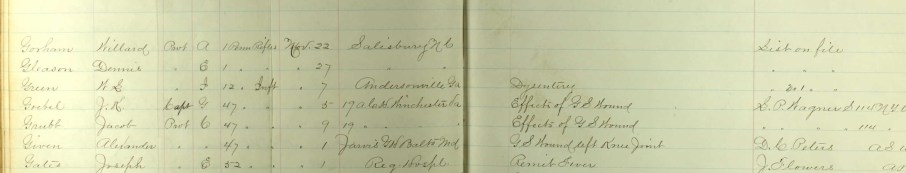 Gorham Willard Pvt A 1 Penn Rifles Nov. 22 Salisbury N C List on file
Gleason Dennis " E 1 " " " 27 " " " "
Green W L " I 12 " Inft " 7 Andersonville Ga Dysentery " 201 "
Goebel J. K Capt G 47 " " " 5 19 A Ck Winchester Va Effects of G S Wound L. P. Wagner S 114 N.Y.
Jacob Pvt C 47 " " " 9 19 " " " Effects of G S Wound " " " " 114 " "
Given Alexander " " 47 " " " 1 Jarvis G H Balto Md G S Wound left Knee Joint D. C. Peters A S
Gates Joseph " E 52 " " " 1 Reg Hospl Remit Fever J. Flowers